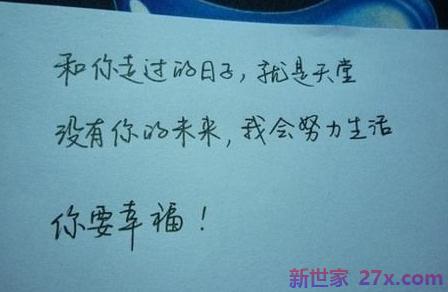 和你走过的日子，就是天堂
没有你的未来，我会努力生活
你要幸福！
新世家 27x.com